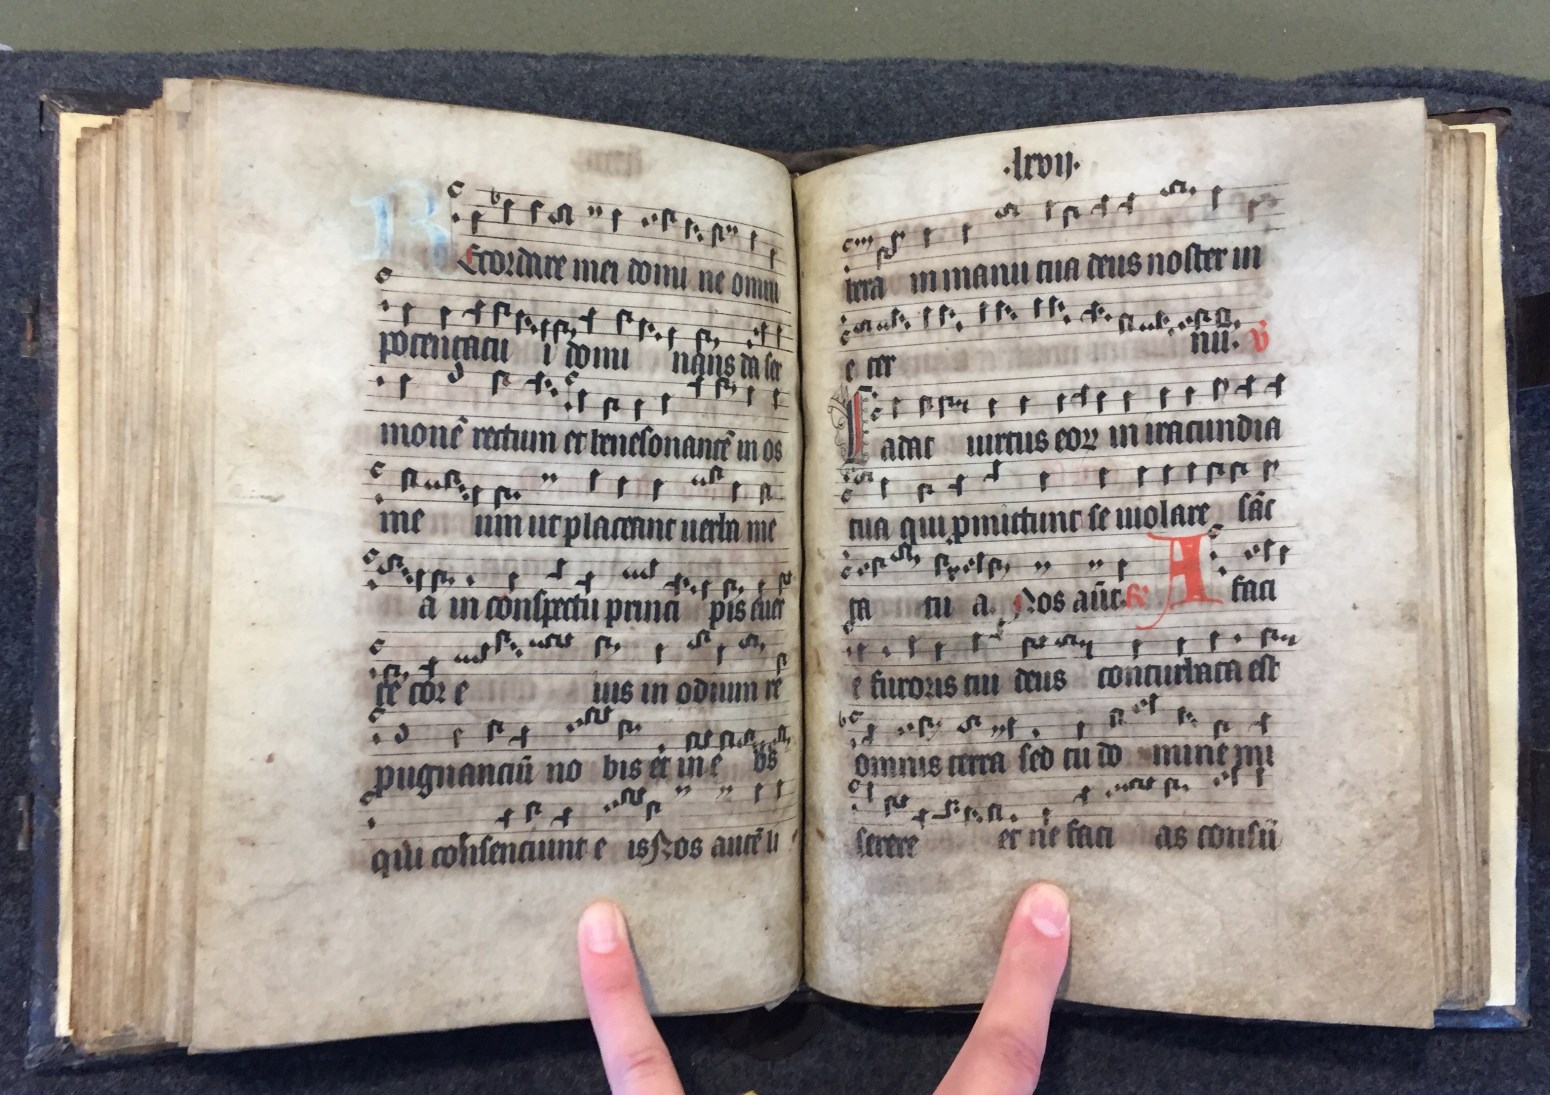 Recordare mei domi ne omni
potentatu i domi nans da ser
monē rectum et benesonantē in os
me um ut placeant uerba me
a in conspectu princi pis cuer
te cor e ius in odium re
pugnanciū no bis et in e os
qui consenciunt e is Nos autē li
.lxvij.
bera in manu tua deus noster in
e ter nū. v̄
Cadat uirtus eoꝝ in iracundia
tua qui ꝓmittunt se uiolare sāc
ta tu a. Nos aūt. Aʀ faci
e furoris tui deus conturbata est
omnis terra sed tu do mine mi
serere et ne faci as consū